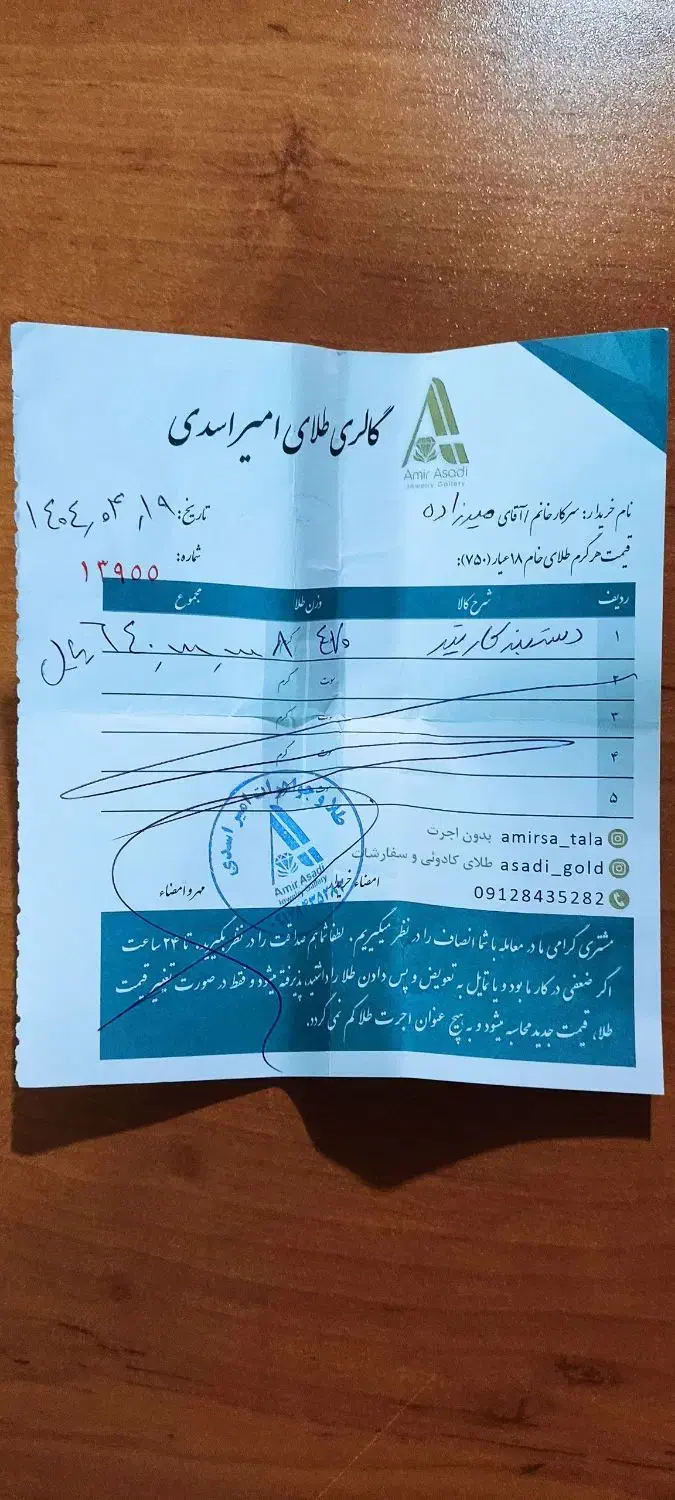 گالری طلای امیر اسدی
Amir Asadi
Jewelry Gallery
نام خریدار: سرکار خانم / آقای میرزاده
تاریخ: ۱۴۰۴,۰۴,۱۹
قیمت هر گرم طلای خام ۱۸ عیار (۷۵۰):
شماره: ۱۳۹۵۵
ردیف شرح کالا وزن طلا مجموع
۱ دستبند کارتیر ۸ گرم ریال
۲ سوت گرم
۳ سوت گرم
۴ سوت گرم
۵
amirsa_tala بدون اجرت
asadi_gold طلای کادوئی و سفارشات
09128435282
امضاء خریدار
مهر و امضاء
طلا و جواهرات امیر اسدی
Amir Asadi
Jewelry Gallery
مشتری گرامی ما در معامله با شما انصاف را در نظر میگیریم. لطفا شما هم صداقت را در نظر بگیرید. تا ۲۴ ساعت
اگر ضعفی در کار ما بود و یا تمایل به تعویض و پس دادن طلا را داشتید پذیرفته میشود و فقط در صورت تغییر قیمت
طلا، قیمت جدید محاسبه میشود و به هیچ عنوان اجرت طلا کم نمی گردد.